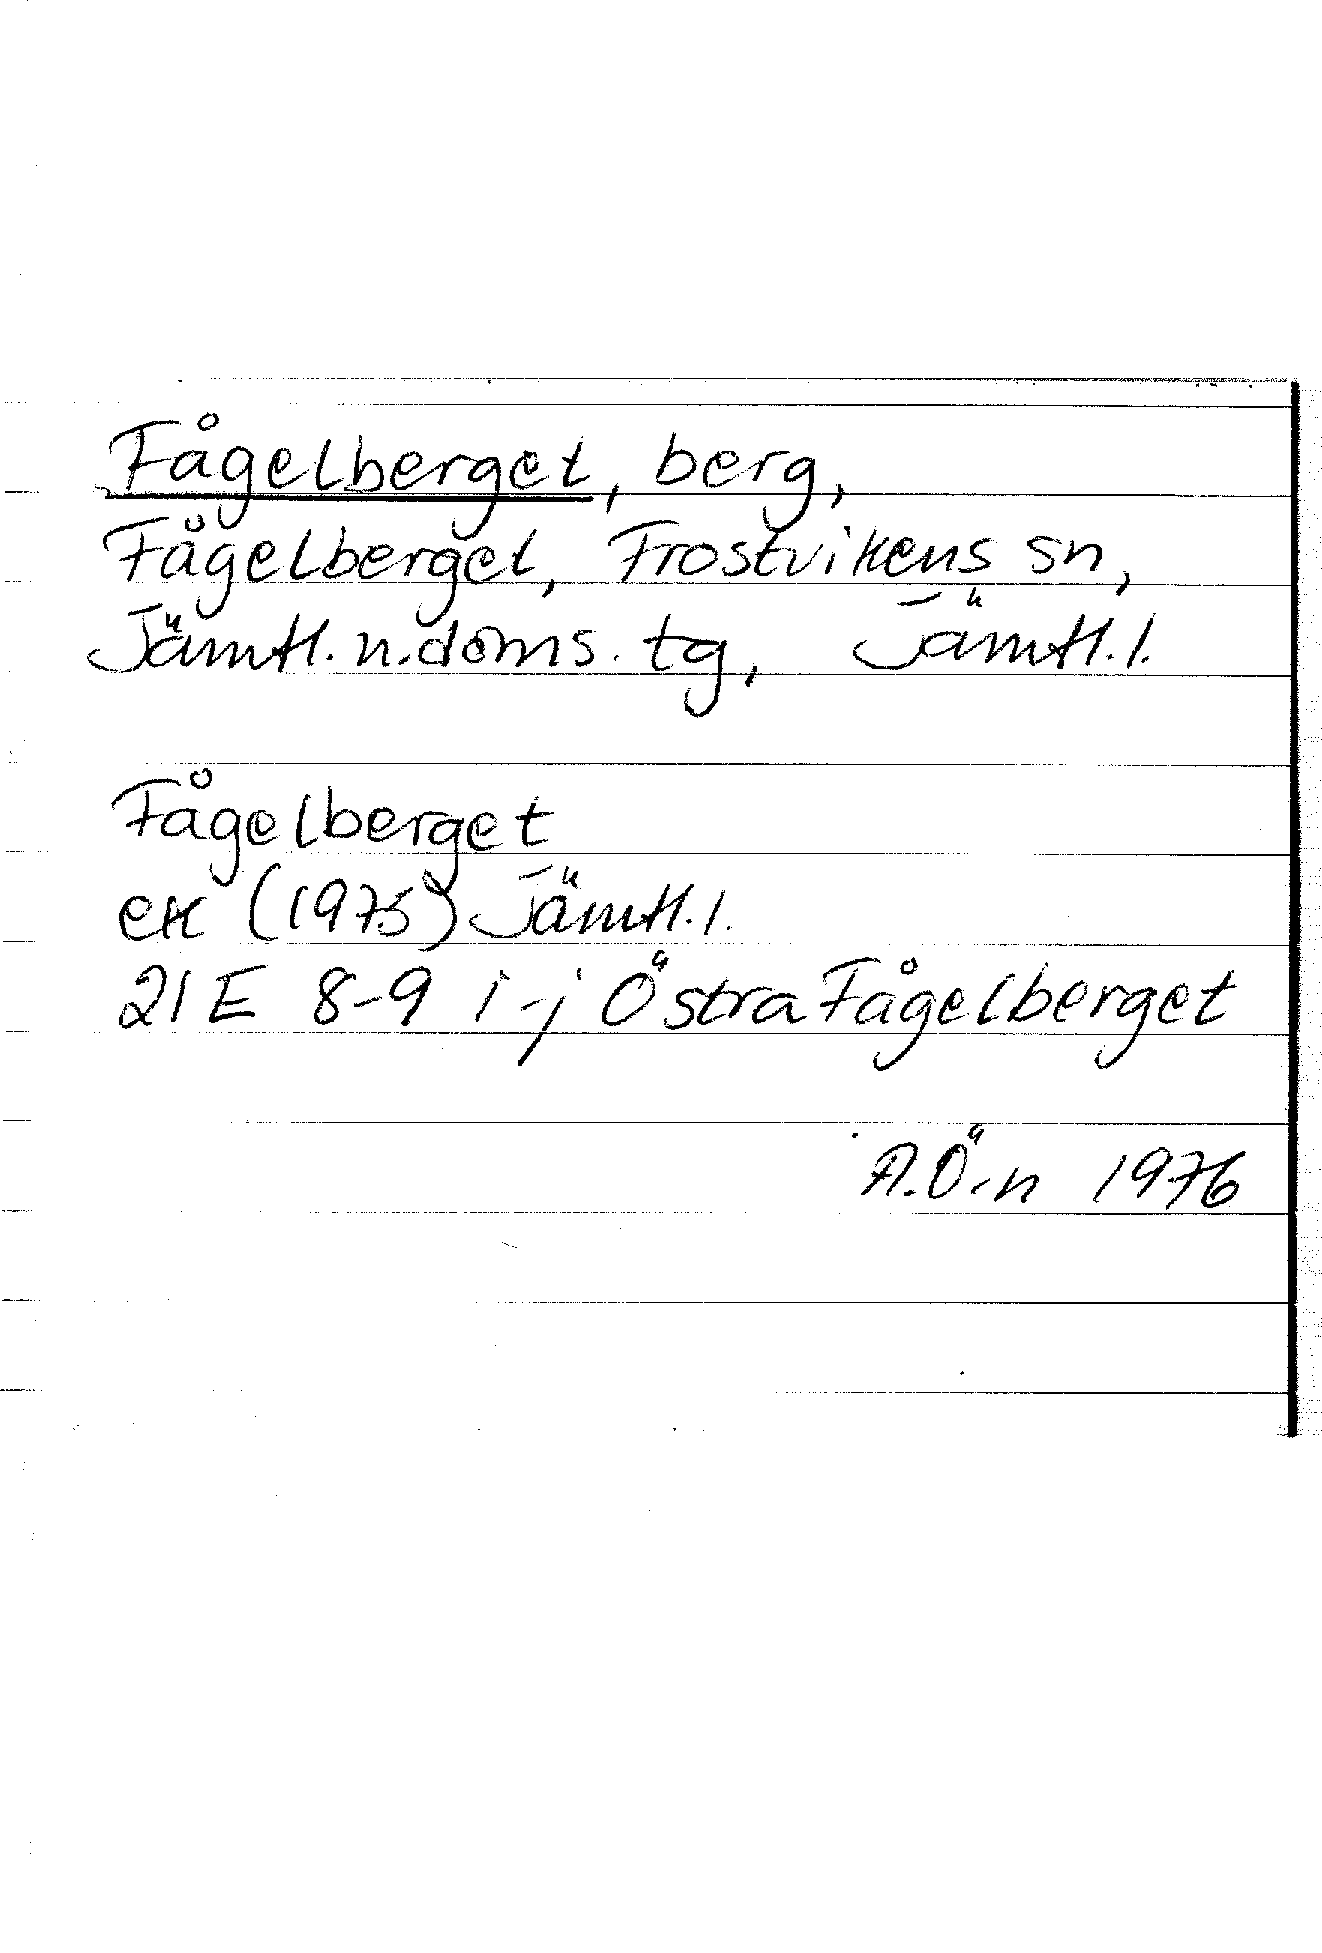 Fågelberget, berg,
Fågelberget, Frostvikens sn,
Jämtl. n. doms. tg, Jämtl. l.
Fågelberget
ek (1975) Jämtl. l.
21E 8-9 i-j Östra Fågelberget
A.Ö-n 1976